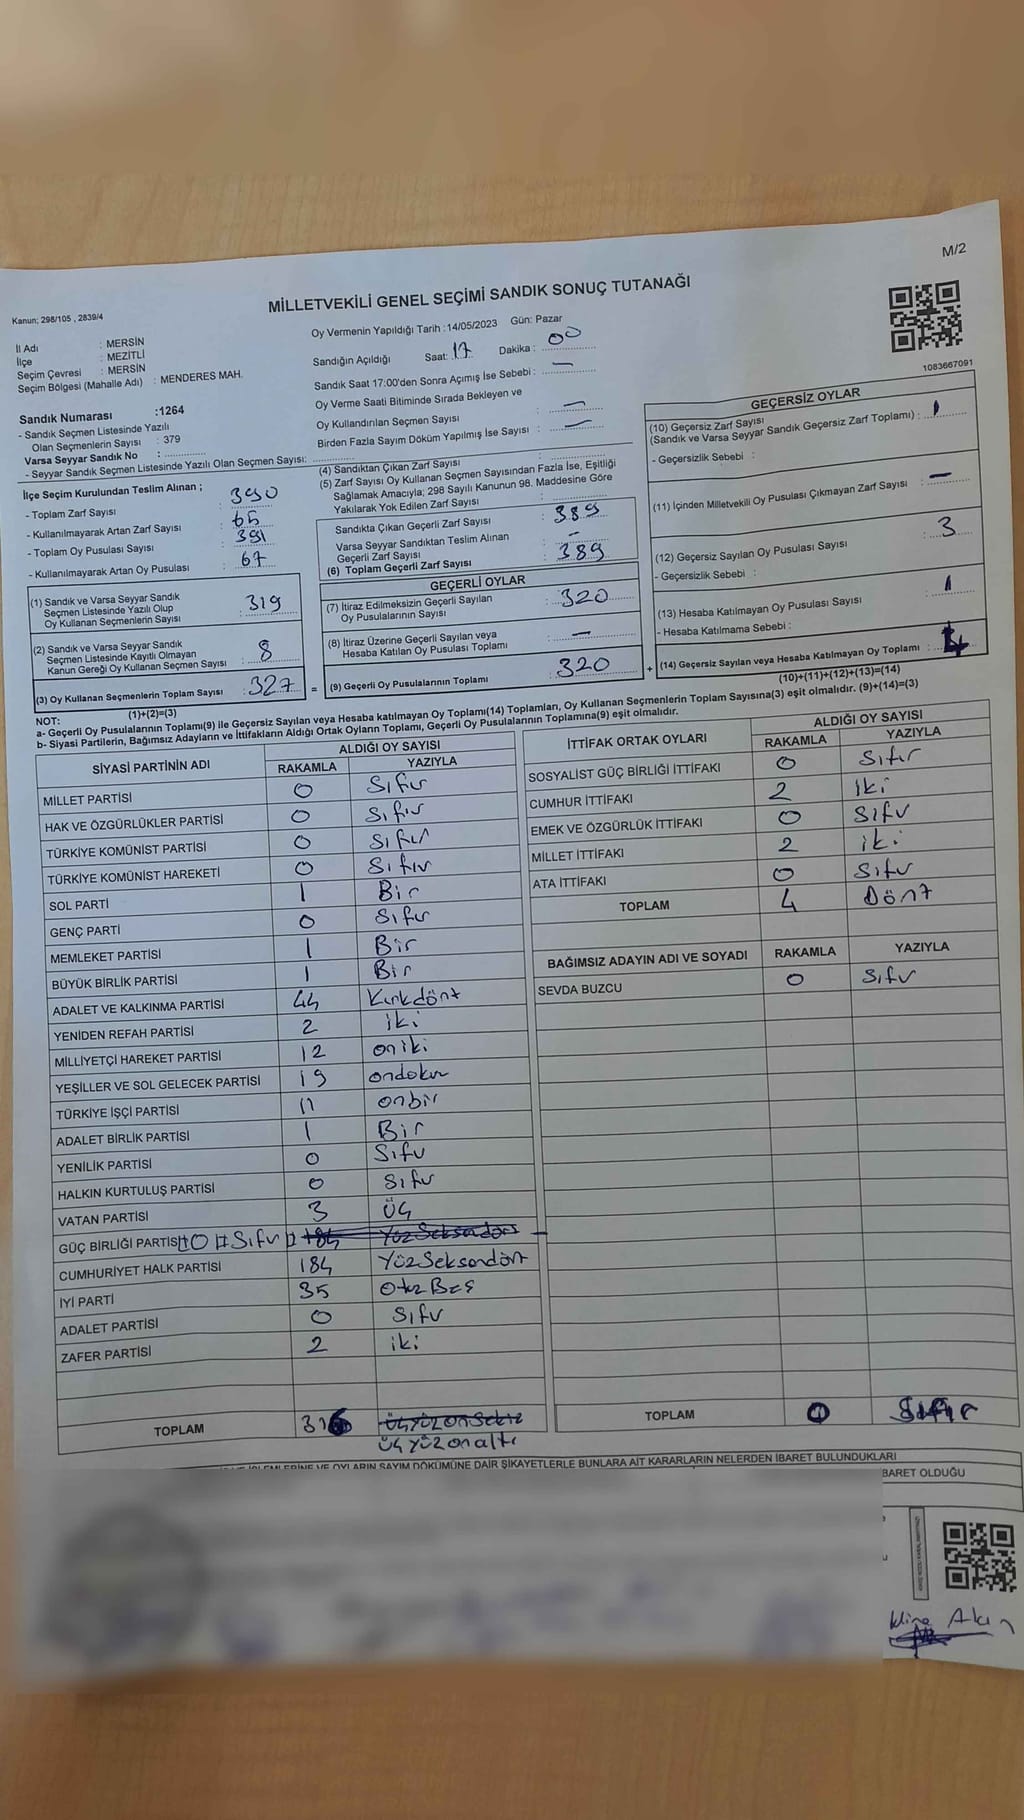 M/2
MİLLETVEKİLİ GENEL SEÇİMİ SANDIK SONUÇ TUTANAĞI
Kanun; 298/105 , 2839/4
İl Adı : MERSİN
İlçe : MEZİTLİ
Seçim Çevresi : MERSİN
Seçim Bölgesi (Mahalle Adı) : MENDERES MAH.
Sandık Numarası :1264
- Sandık Seçmen Listesinde Yazılı
Olan Seçmenlerin Sayısı : 379
Varsa Seyyar Sandık No :
- Seyyar Sandık Seçmen Listesinde Yazılı Olan Seçmen Sayısı:
Oy Vermenin Yapıldığı Tarih :14/05/2023 Gün: Pazar
Sandığın Açıldığı Saat: 17 Dakika : 00
Sandık Saat 17:00'den Sonra Açımış İse Sebebi : —
Oy Verme Saati Bitiminde Sırada Bekleyen ve
Oy Kullandırılan Seçmen Sayısı : —
Birden Fazla Sayım Döküm Yapılmış İse Sayısı : —
1083667091
İlçe Seçim Kurulundan Teslim Alınan ;
- Toplam Zarf Sayısı : 390
- Kullanılmayarak Artan Zarf Sayısı : 65
- Toplam Oy Pusulası Sayısı : 391
- Kullanılmayarak Artan Oy Pusulası : 67
(1) Sandık ve Varsa Seyyar Sandık
Seçmen Listesinde Yazılı Olup
Oy Kullanan Seçmenlerin Sayısı : 319
(2) Sandık ve Varsa Seyyar Sandık
Seçmen Listesinde Kayıtlı Olmayan
Kanun Gereği Oy Kullanan Seçmen Sayısı : 8
(3) Oy Kullanan Seçmenlerin Toplam Sayısı : 327
(1)+(2)=(3)
(4) Sandıktan Çıkan Zarf Sayısı :
(5) Zarf Sayısı Oy Kullanan Seçmen Sayısından Fazla İse, Eşitliği
Sağlamak Amacıyla; 298 Sayılı Kanunun 98. Maddesine Göre
Yakılarak Yok Edilen Zarf Sayısı :
Sandıkta Çıkan Geçerli Zarf Sayısı : 389
Varsa Seyyar Sandıktan Teslim Alınan
Geçerli Zarf Sayısı : -
(6) Toplam Geçerli Zarf Sayısı : 389
GEÇERLİ OYLAR
(7) İtiraz Edilmeksizin Geçerli Sayılan
Oy Pusulalarının Sayısı : 320
(8) İtiraz Üzerine Geçerli Sayılan veya
Hesaba Katılan Oy Pusulası Toplamı : —
= (9) Geçerli Oy Pusulalarının Toplamı : 320 +
GEÇERSİZ OYLAR
(10) Geçersiz Zarf Sayısı
(Sandık ve Varsa Seyyar Sandık Geçersiz Zarf Toplamı) : 1
- Geçersizlik Sebebi :
(11) İçinden Milletvekili Oy Pusulası Çıkmayan Zarf Sayısı : —
(12) Geçersiz Sayılan Oy Pusulası Sayısı : 3
- Geçersizlik Sebebi :
(13) Hesaba Katılmayan Oy Pusulası Sayısı : 1
- Hesaba Katılmama Sebebi :
(14) Geçersiz Sayılan veya Hesaba Katılmayan Oy Toplamı :
(10)+(11)+(12)+(13)=(14)
NOT:
a- Geçerli Oy Pusulalarının Toplamı(9) ile Geçersiz Sayılan veya Hesaba katılmayan Oy Toplamı(14) Toplamları, Oy Kullanan Seçmenlerin Toplam Sayısına(3) eşit olmalıdır. (9)+(14)=(3)
b- Siyasi Partilerin, Bağımsız Adayların ve İttifakların Aldığı Ortak Oyların Toplamı, Geçerli Oy Pusulalarının Toplamına(9) eşit olmalıdır.
SİYASİ PARTİNİN ADI ALDIĞI OY SAYISI
RAKAMLA YAZIYLA
MİLLET PARTİSİ 0 Sıfır
HAK VE ÖZGÜRLÜKLER PARTİSİ 0 Sıfır
TÜRKİYE KOMÜNİST PARTİSİ 0 Sıfır
TÜRKİYE KOMÜNİST HAREKETİ 0 Sıfır
SOL PARTİ 1 Bir
GENÇ PARTİ 0 Sıfır
MEMLEKET PARTİSİ 1 Bir
BÜYÜK BİRLİK PARTİSİ 1 Bir
ADALET VE KALKINMA PARTİSİ 44 Kırkdört
YENİDEN REFAH PARTİSİ 2 iki
MİLLİYETÇİ HAREKET PARTİSİ 12 oniki
YEŞİLLER VE SOL GELECEK PARTİSİ 19 ondokuz
TÜRKİYE İŞÇİ PARTİSİ 11 onbir
ADALET BİRLİK PARTİSİ 1 Bir
YENİLİK PARTİSİ 0 Sıfır
HALKIN KURTULUŞ PARTİSİ 0 Sıfır
VATAN PARTİSİ 3 üç
GÜÇ BİRLİĞİ PARTİSİ #0 # Sıfır # 184 YüzSeksendört
CUMHURİYET HALK PARTİSİ 184 YüzSeksendört
İYİ PARTİ 35 OtuzBeş
ADALET PARTİSİ 0 Sıfır
ZAFER PARTİSİ 2 iki
TOPLAM 316 üçyüzonsekiz
üçyüzonaltı
İTTİFAK ORTAK OYLARI ALDIĞI OY SAYISI
RAKAMLA YAZIYLA
SOSYALİST GÜÇ BİRLİĞİ İTTİFAKI 0 Sıfır
CUMHUR İTTİFAKI 2 iki
EMEK VE ÖZGÜRLÜK İTTİFAKI 0 Sıfır
MİLLET İTTİFAKI 2 iki
ATA İTTİFAKI 0 Sıfır
TOPLAM 4 Dört
BAĞIMSIZ ADAYIN ADI VE SOYADI RAKAMLA YAZIYLA
SEVDA BUZCU 0 Sıfır
TOPLAM 0 Sıfır
OYLARIN SAYIM DÖKÜMÜNE DAİR ŞİKAYETLERLE BUNLARA AİT KARARLARIN NELERDEN İBARET BULUNDUKLARI
BARET OLDUĞU
Akın